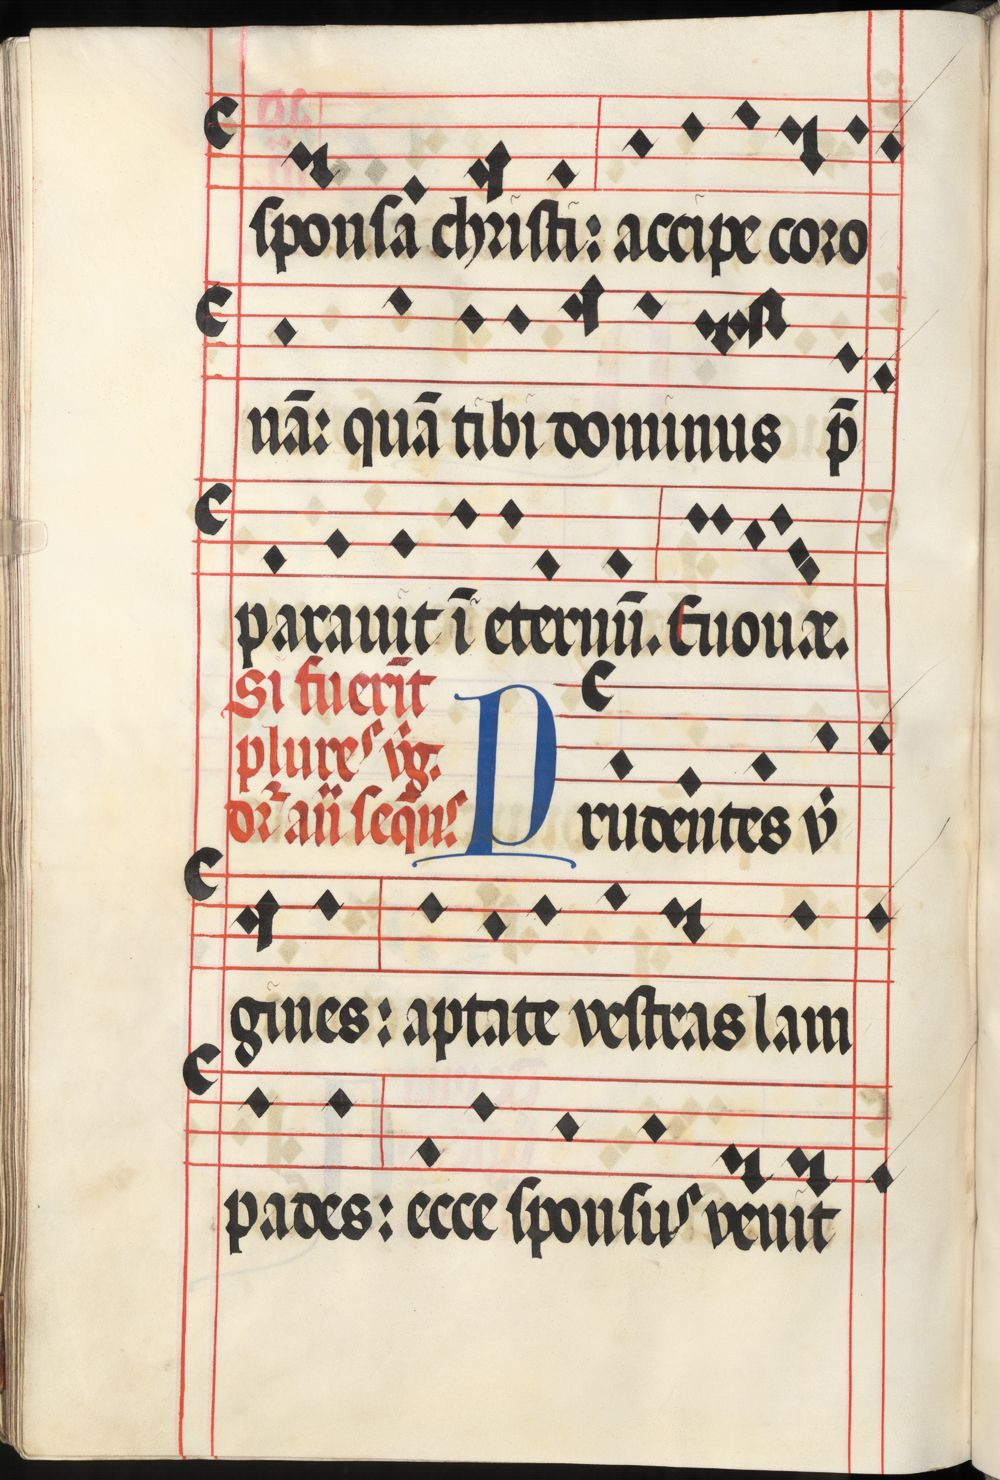 sponsa christi: accipe coro
nā: quā tibi dominus p̄
parauit ī eternū. Euouæ.
Si fuerīt
plures v̄g.
dr̄ añ sequēs
Prudentes v̄
gines: aptate vestras lam
pades: ecce sponsus venit